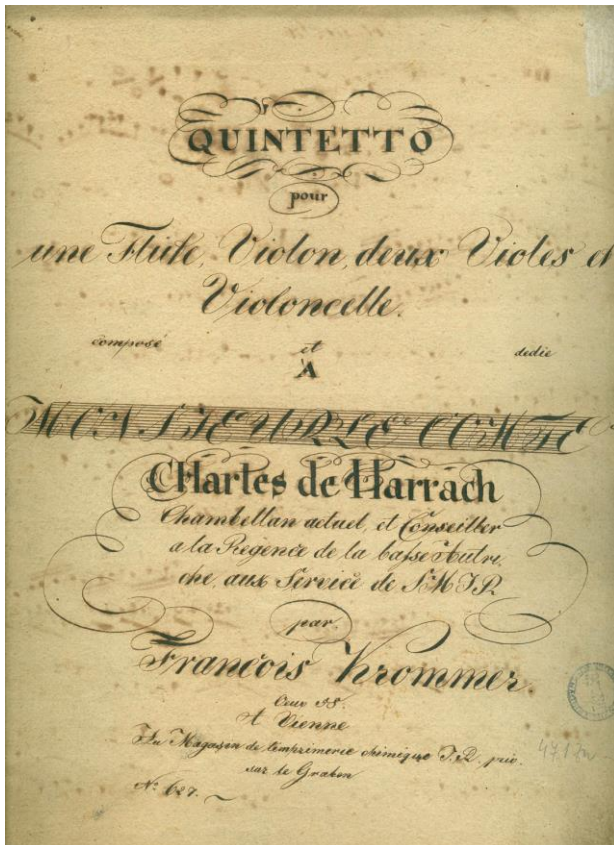 QUINTETTO
pour
une Flûte, Violon, deux Violes et
Violoncelle.
composé et dedié
A
MONSIEUR LE COMTE
CHarles de Harrach
Chambellan actuel, et Conseiller
a la Regence de la basse Autri,
che, aux Service de S. M. I. R.
par.
François Krommer.
Oeuv 58.
A Vienne
Au Magasin de l'imprimerie chimique I. R. priv.
sur le Graben
No. 627.